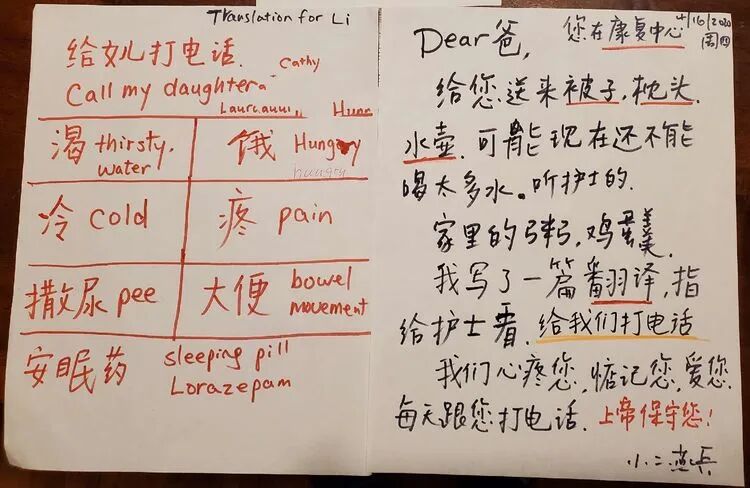 Translation for Li
给女儿打电话. Cathy
Call my daughter
渴 thirsty.
water
饿 Hungry
hungry
冷 cold
疼 pain
撒尿 pee
大便 bowel
movement
安眠药 sleeping pill
Lorazepam
4/16/2020
周四
Dear爸, 您在康复中心
给您送来被子,枕头,
水壶.可能现在还不能
喝太多水。听护士的.
家里的粥,鸡蛋羹.
我写了一篇翻译,指
给护士看.给我们打电话
我们心疼您,惦记您,爱您.
每天跟您打电话.上帝保守您!
小二